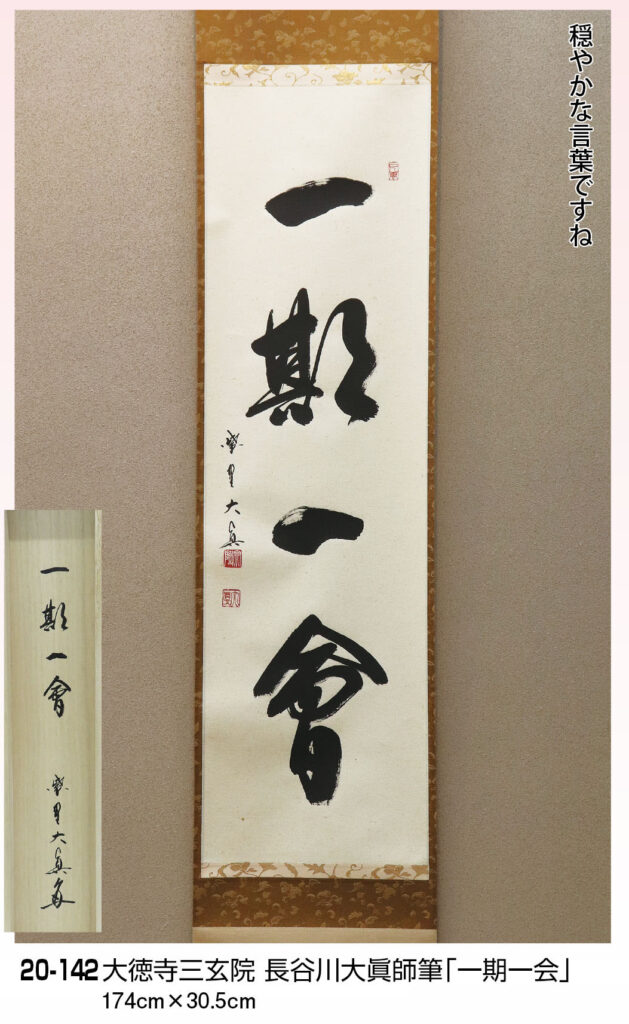 穏やかな言葉ですね
一期一會
大眞
一期一會
大眞
20-142 大徳寺三玄院 長谷川大眞師筆「一期一会」
174cm×30.5cm